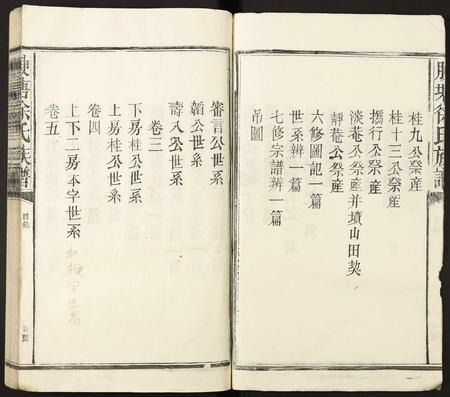 腴塘徐氏族譜
桂九公祭産
桂十三公祭産
撝行公祭産
淡菴公祭産并墳山田契
靜菴公祭産
六修圖記一篇
世系辨一篇
七修宗譜辨一篇
吊圖
審言公世系
韜公世系
壽八公世系
卷三
下房桂公世系
上房桂公世系
卷四
上下二房本字世系
卷五
腴塘徐氏族譜
目錄